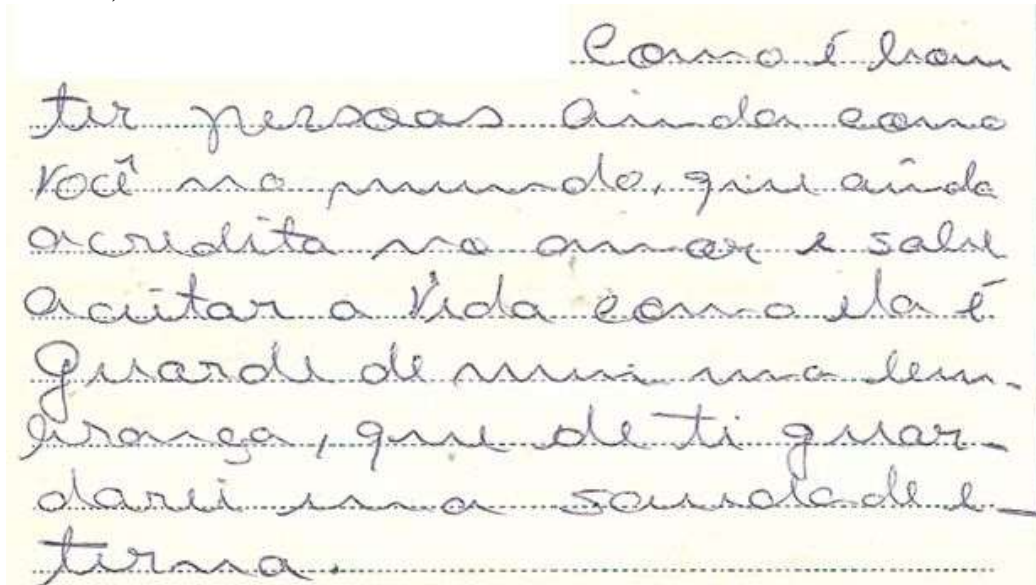 Como é bom
ter pessoas ainda como
você no mundo, que ainda
acredita no amor e sabe
aceitar a vida como ela é
Guarde de mim uma lem-
brança, que de ti guar-
darei uma saudade e-
terna.